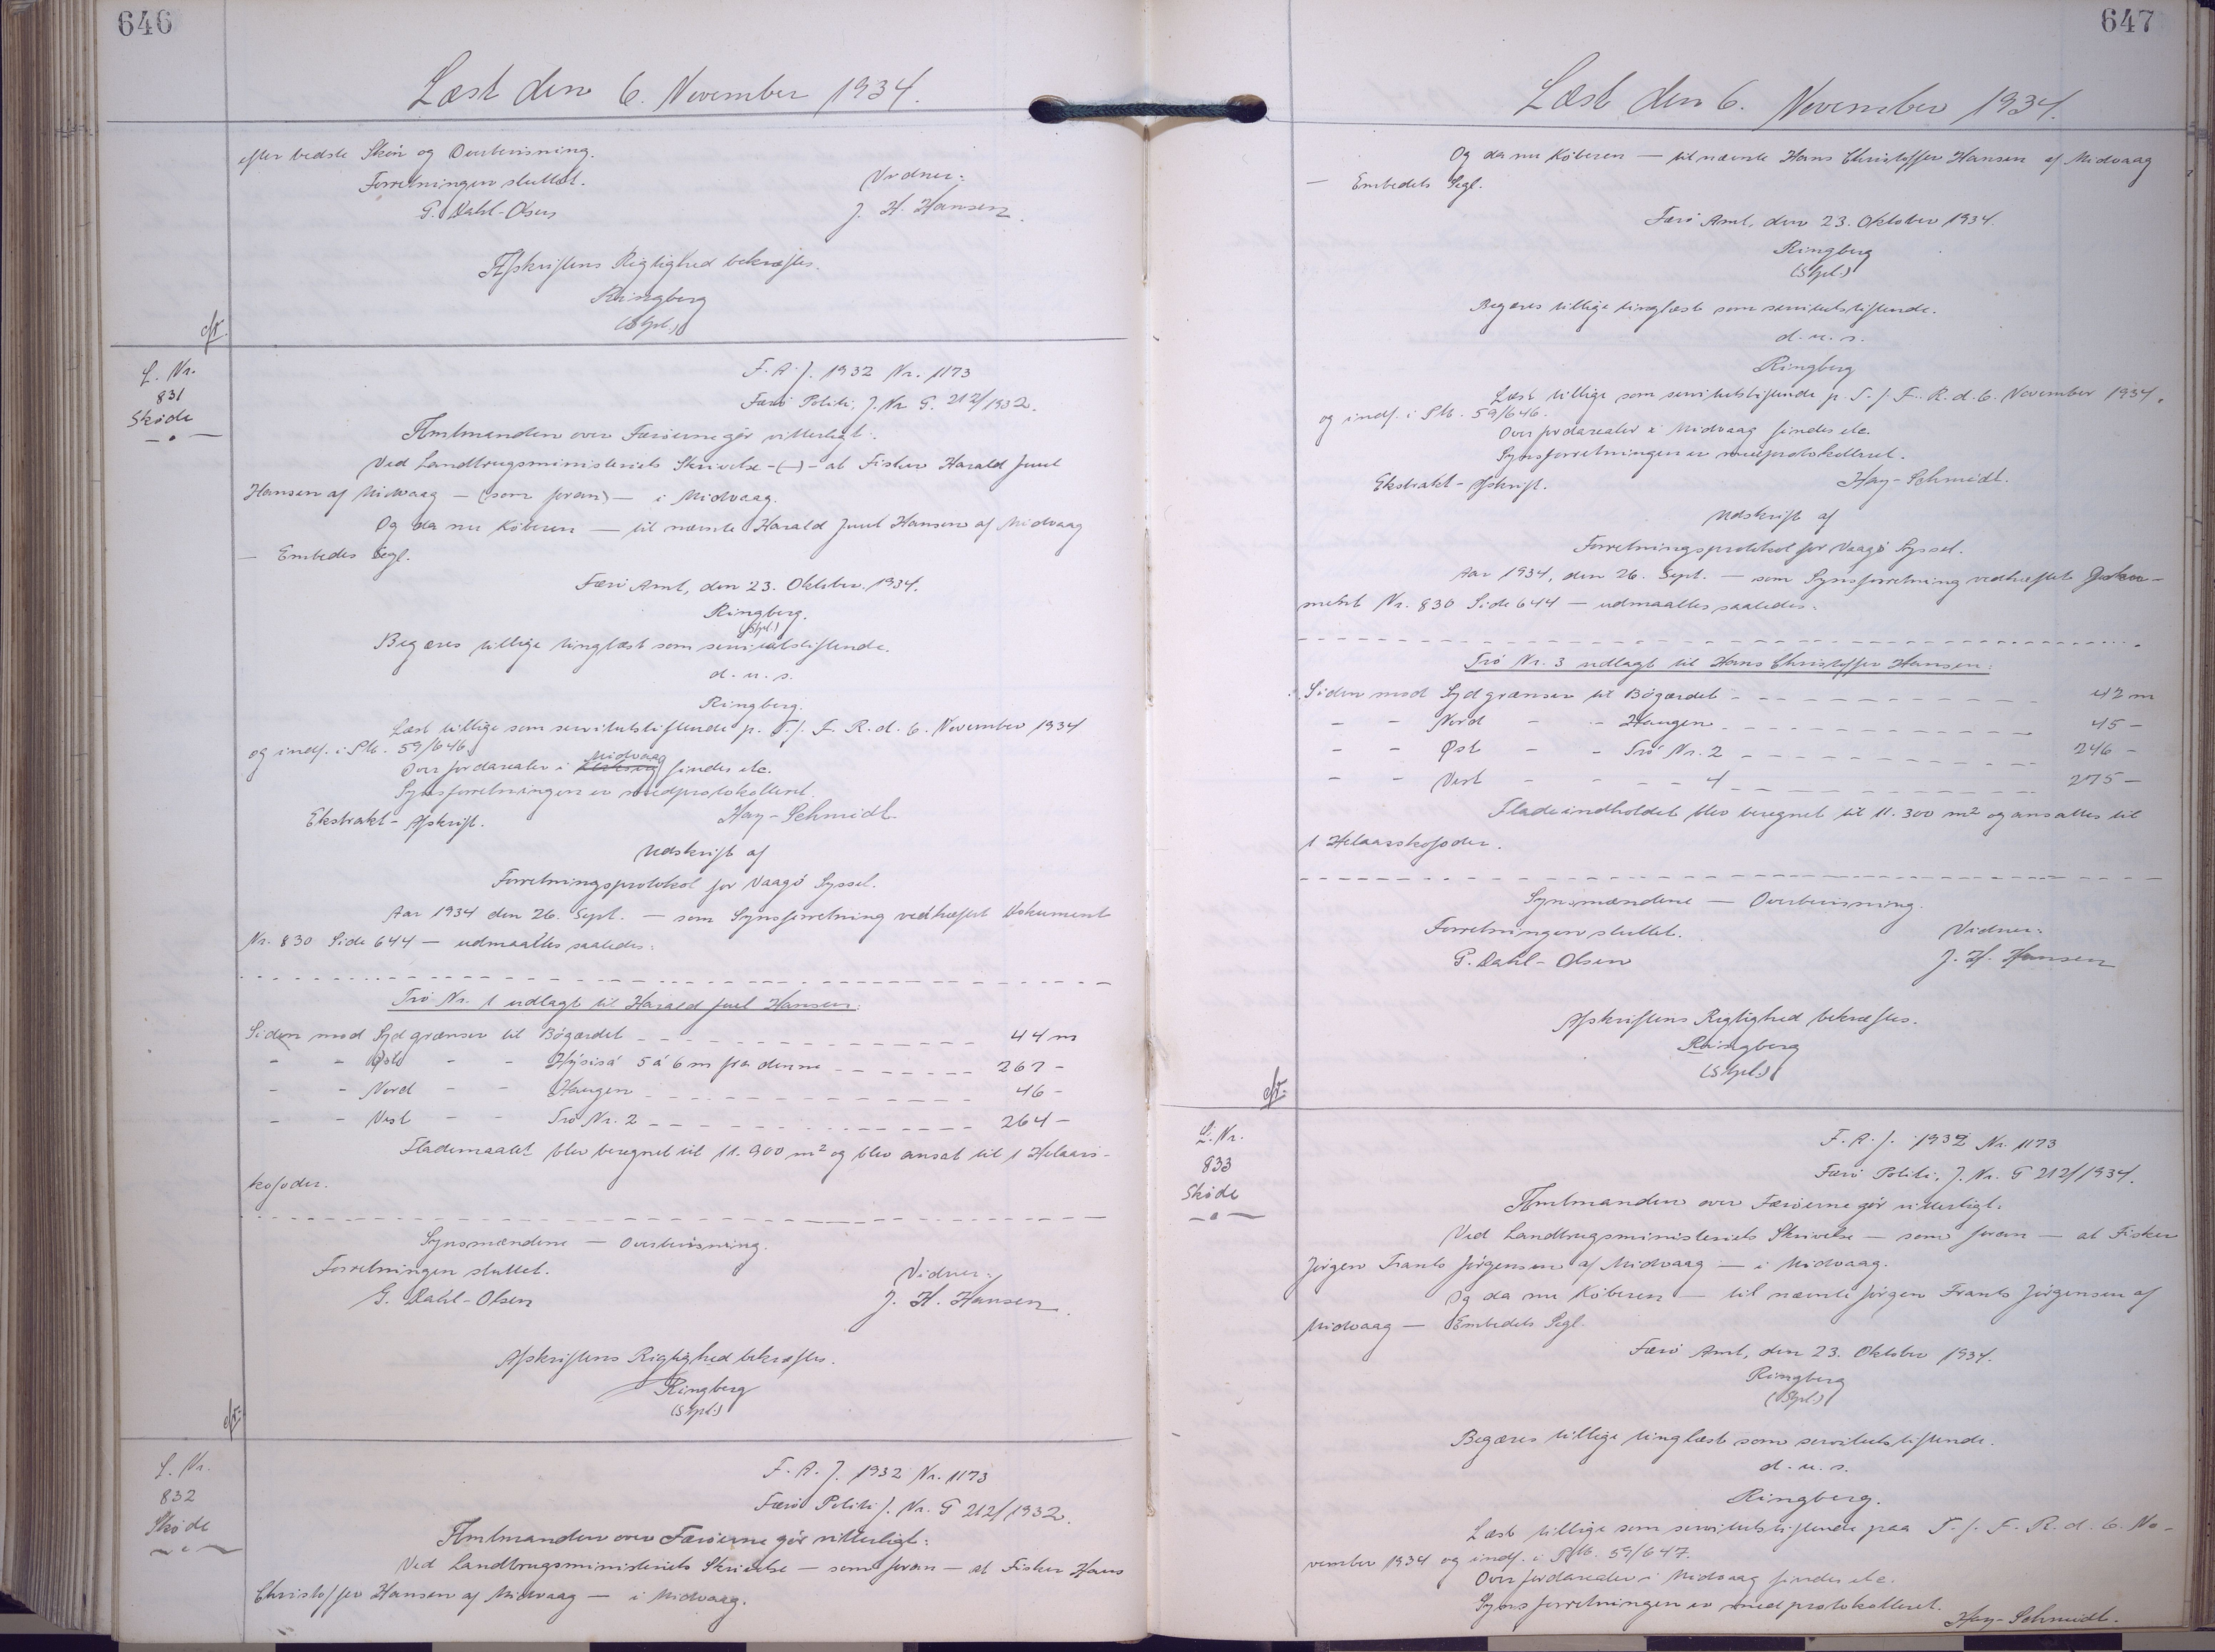 646
Læst den 6. November 1934.
efter bedste Skön og Overbevisning.
Forretningen sluttet.
Vidner:
G. Dahl-Olsen
J. H. Hansen.
Afskriftens Rigtighed bekræftes.
Ringberg
(Sgl.)
L. Nr.
831
Sköde
F. A. J. 1932 Nr. 1173
Færö Politi, J. Nr. G. 212/1932.
Amtmanden over Færöerne gör vitterligt:
Ved Landbrugsministeriets Skrivelse -(-)- at Fisker Harald Juul
Hansen af Midvaag - (som foran) - i Midvaag.
Og da nu Köberen — til nævnte Harald Juul Hansen af Midvaag
— Embedes Segl.
Færö Amt, den 23. Oktober 1934.
Ringberg.
(Sgl.)
Begæres tillige tinglæst som servitutstiftende.
d. u. s.
Ringberg.
Læst tillige som servitutstiftende p. T. f. F. R. d. 6. November 1934
og indf. i Ptk. 59/646.
Over Jordarealer i Midvaag findes etc.
Synsforretningen er medprotokolleret.
Ekstrakt-Afskrift.
Hay-Schmidt.
Udskrift af
Forretningsprotokol for Vaagö Syssel.
Aar 1934 den 26. Sept. — som Synsforretning vedhæftet Dokument
Nr. 830 Side 644 — udmaaltes saaledes:
Trö Nr. 1 udlagt til Harald Juul Hansen:
Siden mod Syd grænser til Bögærdet 44 m
- - Öst - - Hýsisá 5 á 6 m fra denne 267 -
- - Nord - - Haugen 46 -
- - Vest - - Trö Nr. 2 264 -
Flademaalet blev beregnet til 11.900 m² og blev ansat til 1 Helaars-
kofoder.
Synsmændene — Overbevisning.
Forretningen sluttet.
Vidner:
G. Dahl-Olsen
J. H. Hansen.
Afskriftens Rigtighed bekræftes.
Ringberg
(Sgl.)
L. Nr.
832
Sköde
F. A. J. 1932 Nr. 1173
Færö Politi J. Nr. G 212/1932.
Amtmanden over Færöerne gör vitterligt:
Ved Landbrugsministeriets Skrivelse — som foran — at Fisker Hans
Christoffer Hansen af Midvaag — i Midvaag.
647
Læst den 6. November 1934.
Og da nu Köberen — til nævnte Hans Christoffer Hansen af Midvaag
— Embedets Segl.
Færö Amt, den 23. Oktober 1934.
Ringberg
(Sgl.)
Begæres tillige tinglæst som servitutstiftende.
d. u. s.
Ringberg
Læst tillige som servitutstiftende p. T. f. F. R. d. 6. November 1934.
og indf. i Ptk. 59/646.
Over Jordarealer i Midvaag findes etc.
Synsforretningen er medprotokolleret.
Ekstrakt-Afskrift.
Hay-Schmidt.
Udskrift af
Forretningsprotokol for Vaagö Syssel.
Aar 1934, den 26. Sept. — som Synsforretning vedhæftet Doku-
ment Nr. 830 Side 644 — udmaaltes saaledes:
Trö Nr. 3 udlagt til Hans Christoffer Hansen:
Siden mod Syd grænser til Bögærdet 42 m
- - Nord - - Haugen 45 -
- - Øst - - Trö Nr. 2 246 -
- - Vest - - - 4 275 -
Fladeindholdet blev beregnet til 11.300 m² og ansattes til
1 Helaarskofoder.
Synsmændene — Overbevisning.
Forretningen sluttet.
Vidner:
G. Dahl-Olsen
J. H. Hansen
Afskriftens Rigtighed bekræftes.
Ringberg
(Sgl.)
L. Nr.
833
Sköde
F. A. J. 1932 Nr. 1173
Færö Politi, J. Nr. G 212/1934.
Amtmanden over Færöerne gör vitterligt:
Ved Landbrugsministeriets Skrivelse — som foran — at Fisker
Jörgen Frants Jörgensen af Midvaag — i Midvaag.
Og da nu Köberen — til nævnte Jörgen Frants Jörgensen af
Midvaag — Embedets Segl.
Færö Amt, den 23. Oktober 1934.
Ringberg
(Sgl.)
Begæres tillige tinglæst som servitutstiftende.
d. u. s.
Ringberg.
Læst tillige som servitutstiftende paa T. f. F. R. d. 6. No-
vember 1934 og indf. i Ptk. 59/647.
Over Jordarealer i Midvaag findes etc.
Synsforretningen er medprotokolleret.
Hay-Schmidt.